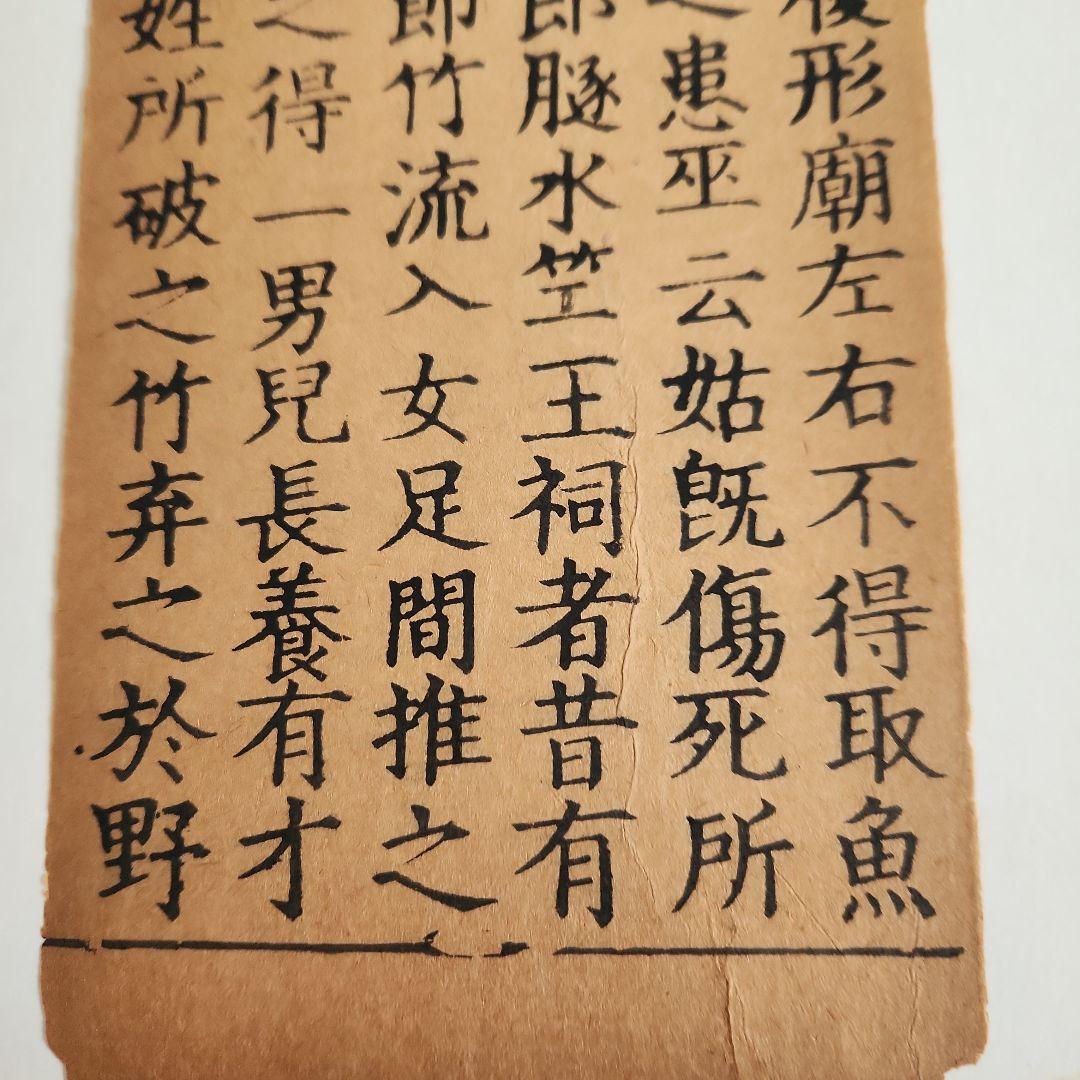 形廟左右不得取魚
患巫云姑既傷死所
郎䐅水竺王祠者昔有
節竹流入女足間推之
之得一男兒長養有才
姓所破之竹弃之於野